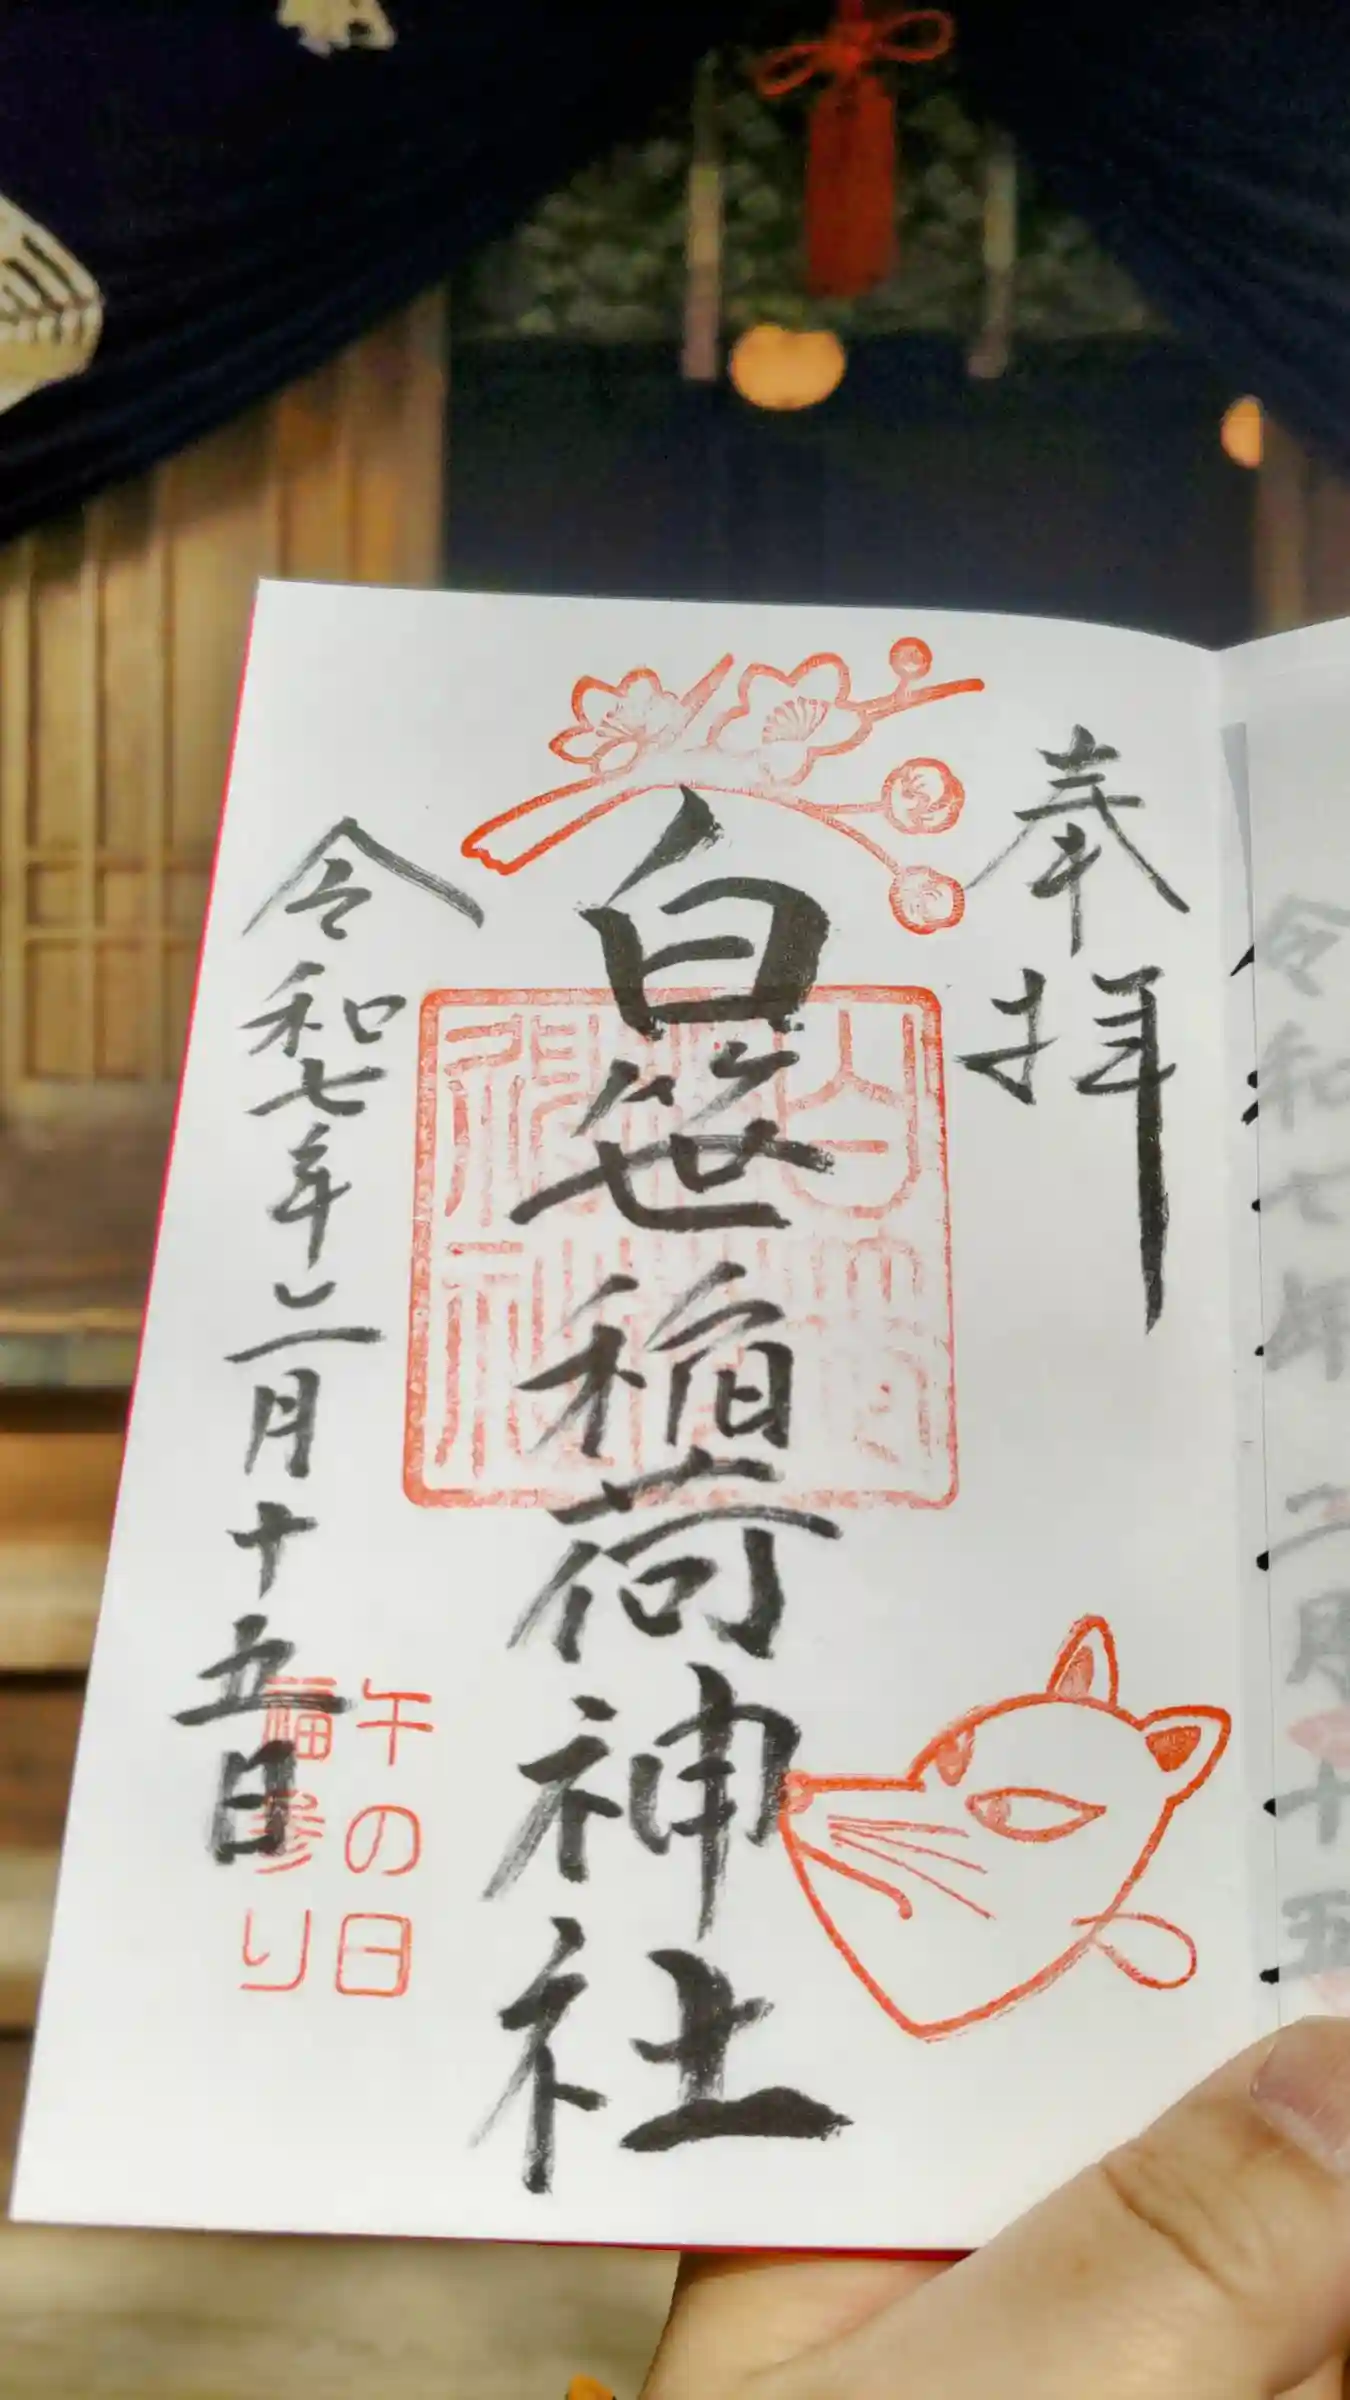 奉拝
白笹稲荷神社
令和七年二月十五日
午の日
福参り
令和七年二月十五